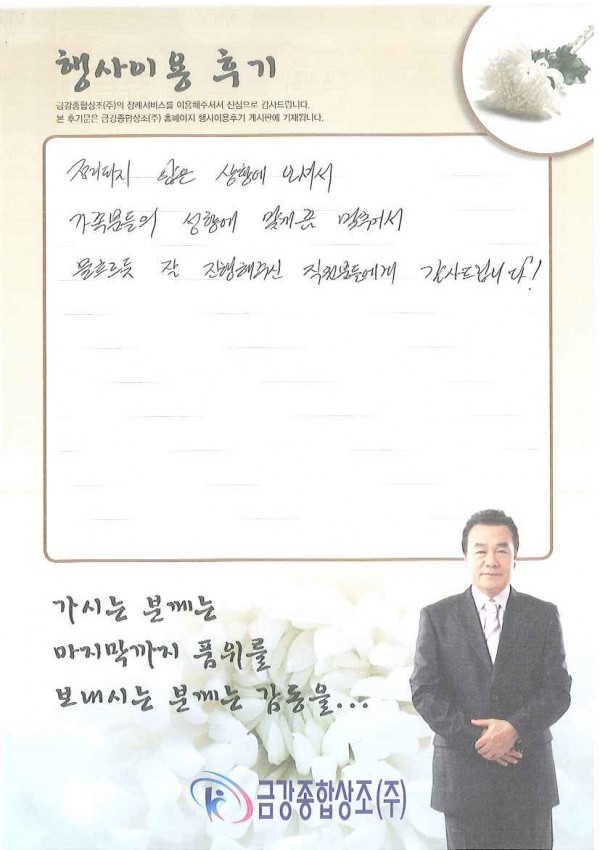 행사이용 후기
금강종합상조(주)의 장례서비스를 이용해주셔서 진심으로 감사드립니다.
본 후기문은 금강종합상조(주) 홈페이지 행사이용후기 게시판에 기재됩니다.
정리되지 않은 상황에 오셔서
가족분들의 성향에 맞게끔 맞추어서
물흐르듯 잘 진행해주신 직원분들에게 감사드립니다!
가시는 분께는
마지막까지 품위를
보내시는 분께는 감동을...
금강종합상조(주)